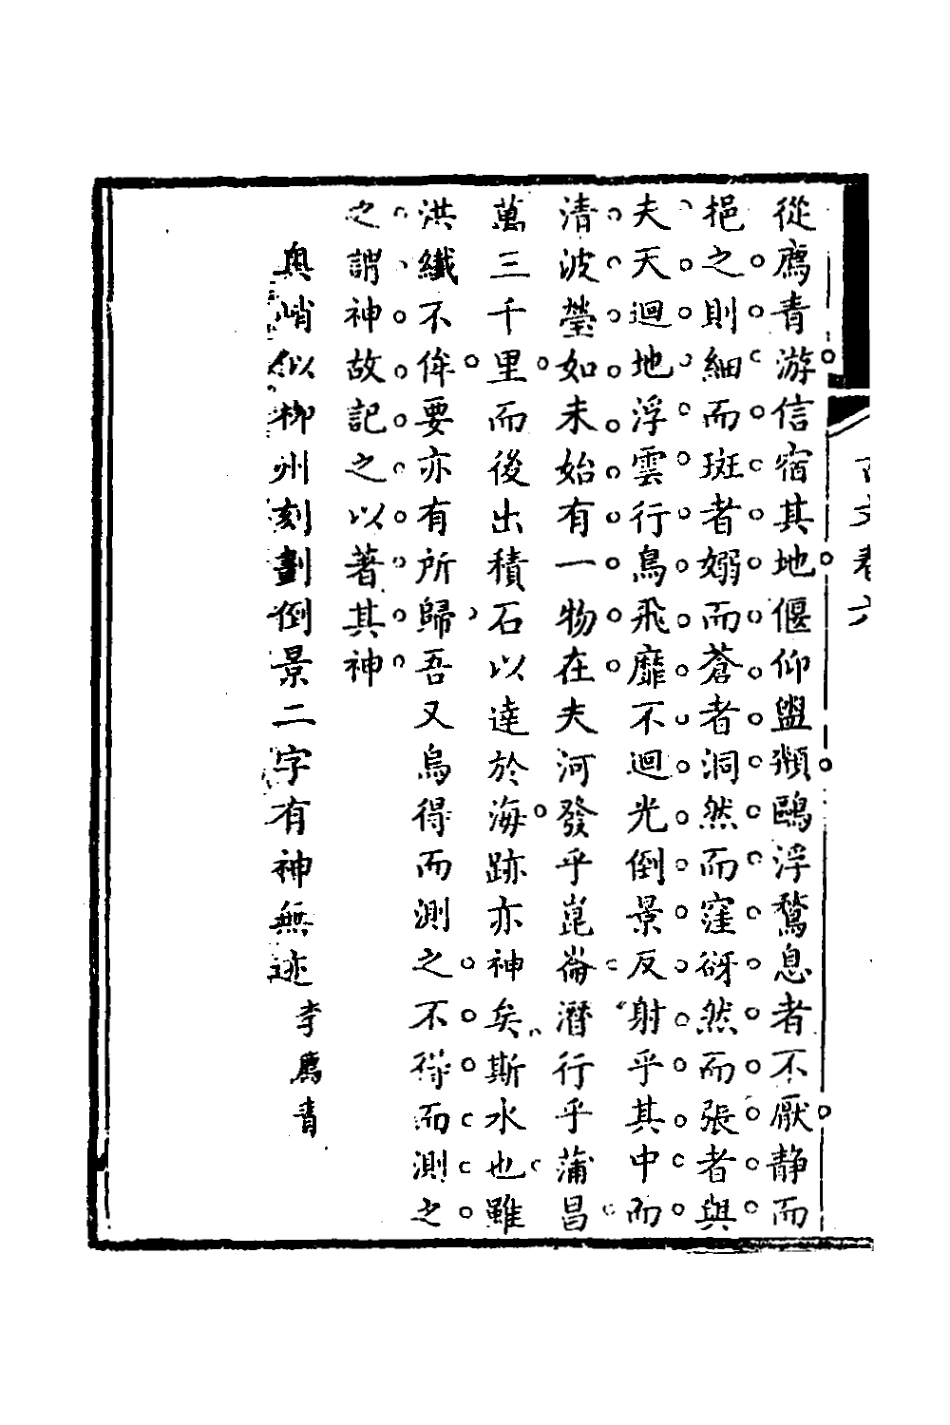 從廌青游信宿其地偃仰盥頮鷗浮鶩息者不厭静而
挹之則細而斑者嫋而蒼者洞然而窪谺然而張者與
夫天迴地浮雲行鳥飛靡不迴光倒景反射乎其中而
清波瑩如未始有一物在夫河發乎崑崙潛行乎蒲昌
萬三千里而後出積石以達於海跡亦神矣斯水也雖
洪纖不侔要亦有所歸吾又烏得而測之不得而測之
之謂神故記之以著其神
奥峭似柳州刻劃倒景二字有神無迹李廌青